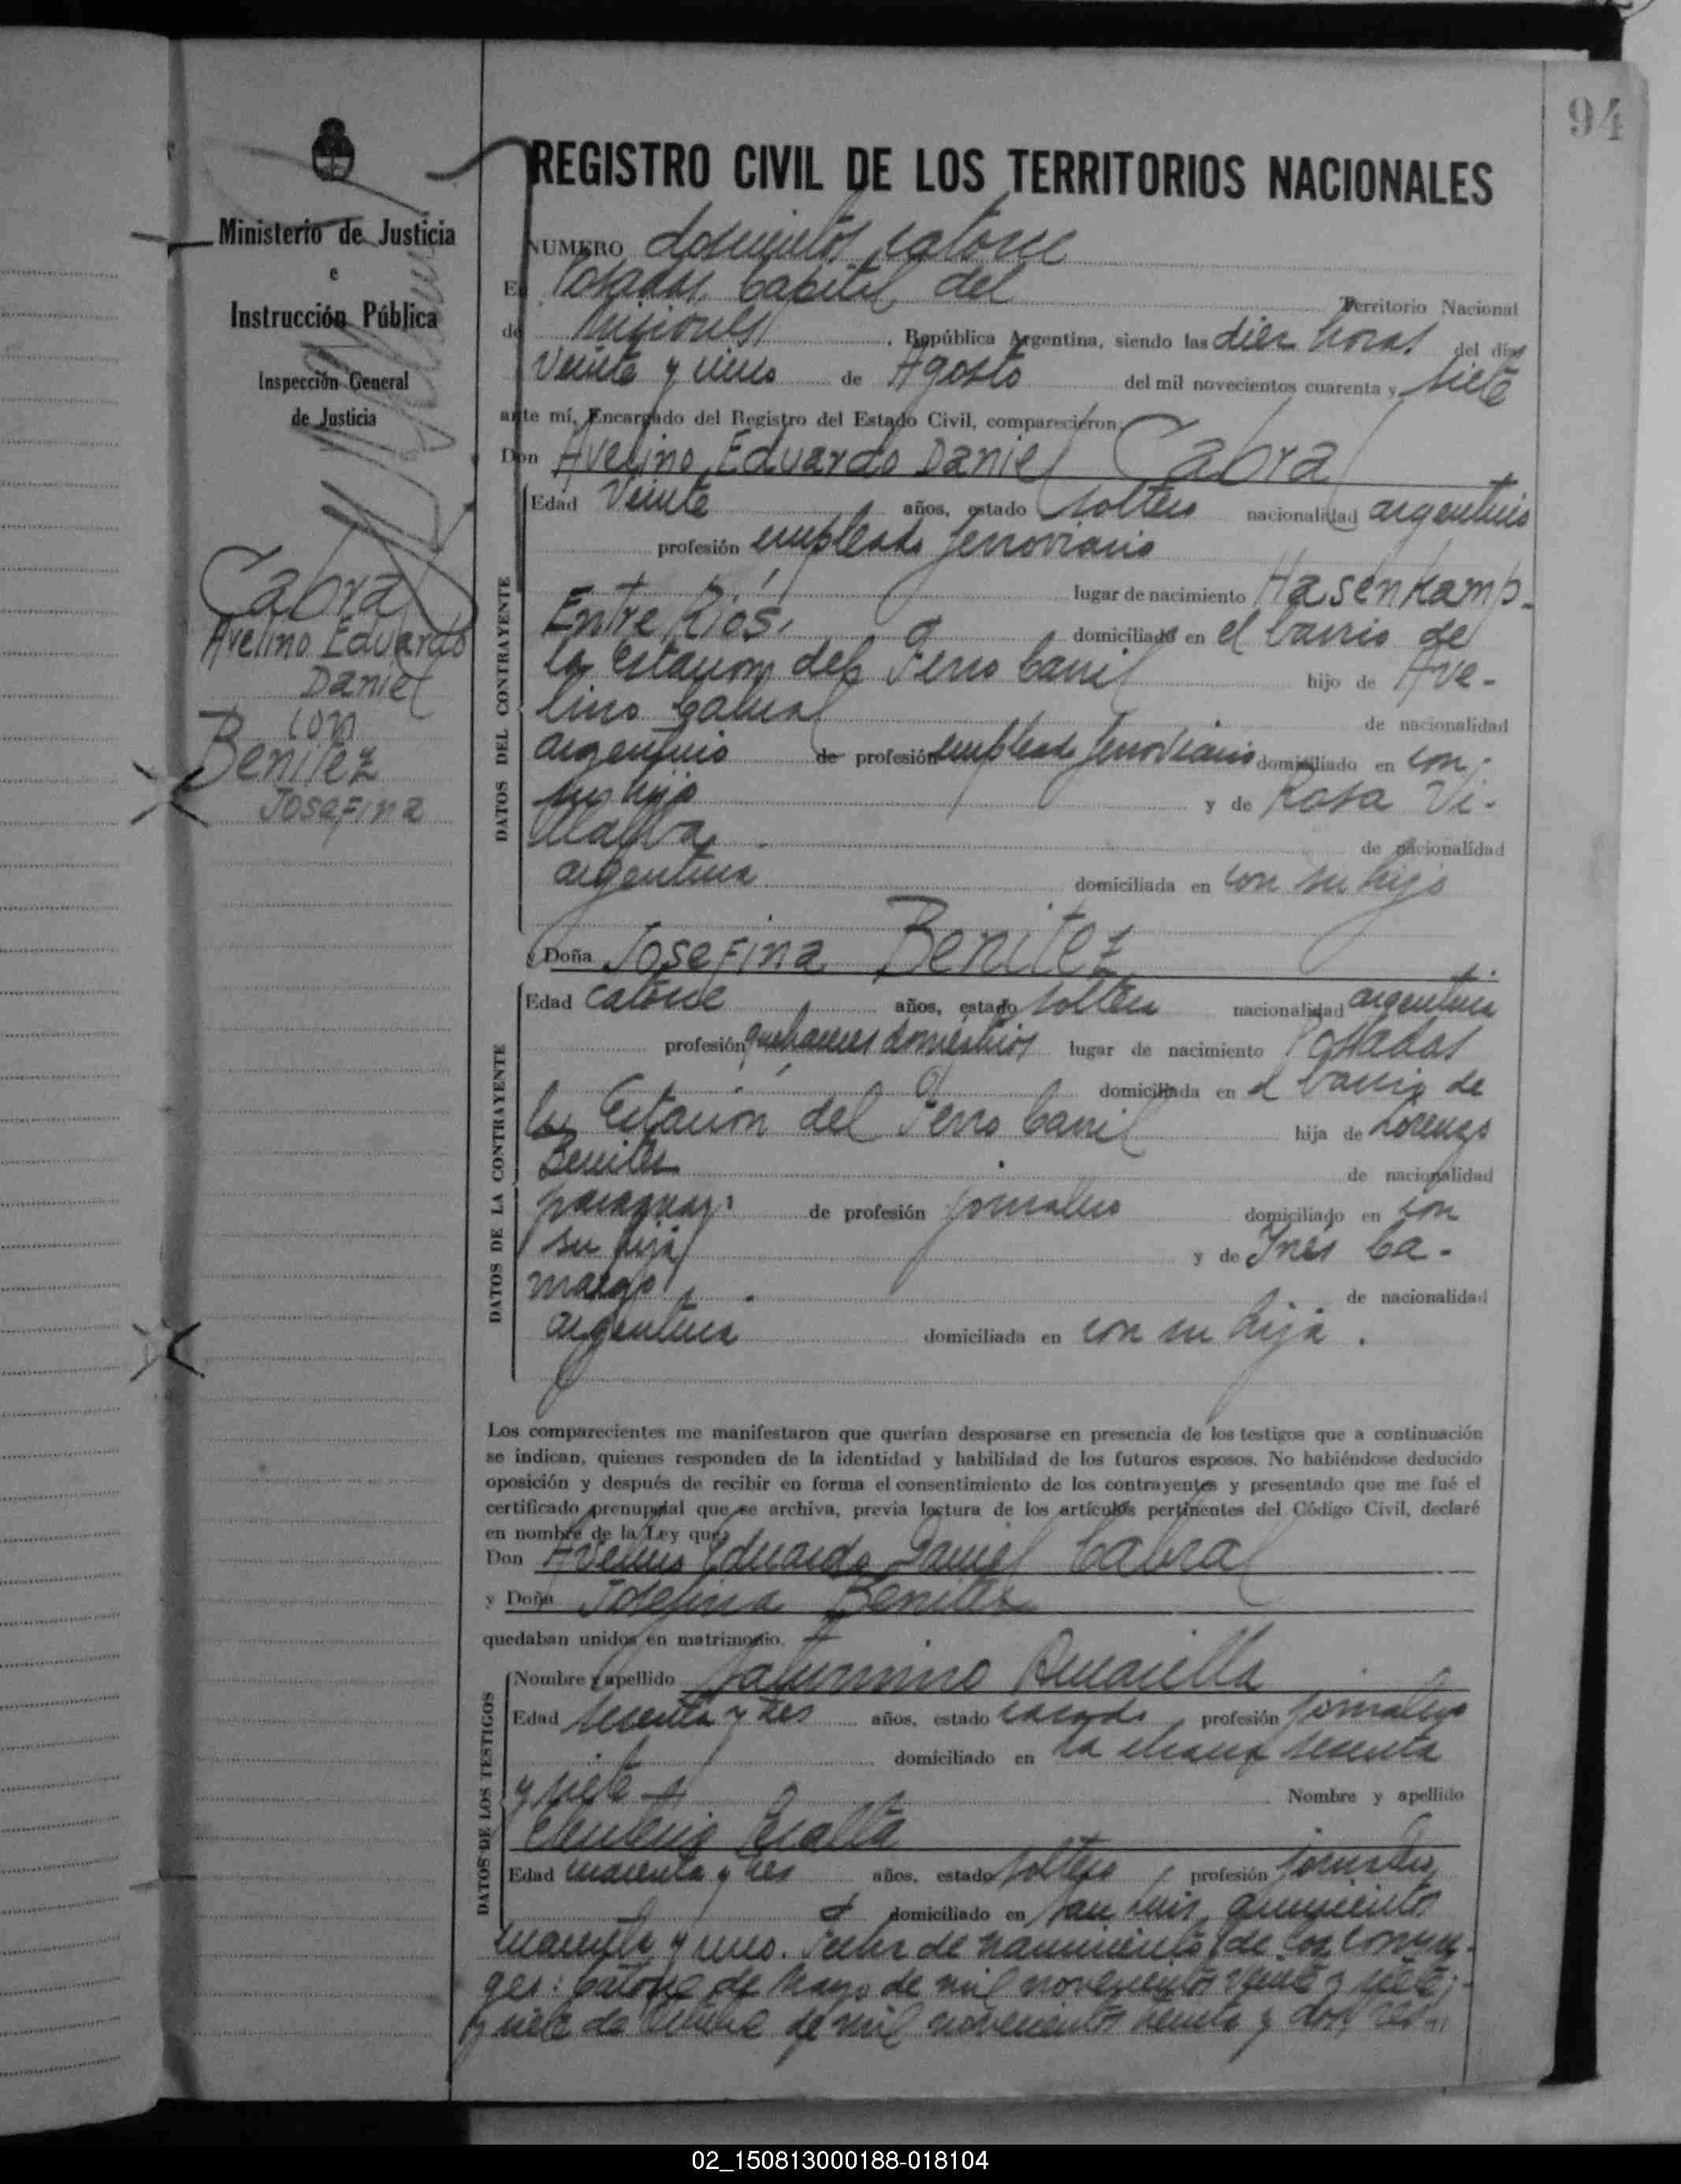 94
Ministerio de Justicia
e
Instrucción Pública
Inspección General
de Justicia
Cabral
Avelino Eduardo
Daniel
con
Benitez
Josefina
REGISTRO CIVIL DE LOS TERRITORIOS NACIONALES
NUMERO doscientos catorce
En Posadas, Capital del Territorio Nacional
de Misiones, República Argentina, siendo las diez horas del día
veinte y cinco de Agosto del mil novecientos cuarenta y siete
ante mí, Encargado del Registro del Estado Civil, comparecieron:
Don Avelino Eduardo Daniel Cabral
DATOS DEL CONTRAYENTE
Edad Veinte años, estado soltero nacionalidad argentino
profesión empleado ferroviario
lugar de nacimiento Hasenkamp-
Entre Ríos. domiciliado en el barrio de
la Estacion del Ferro Carril hijo de Ave-
lino Cabral de nacionalidad
argentino de profesión empleado ferroviario domiciliado en con
su hijo y de Rosa Vi-
llalba de nacionalidad
argentina domiciliada en con su hijo
y Doña Josefina Benitez
DATOS DE LA CONTRAYENTE
Edad catorce años, estado soltera nacionalidad argentina
profesión quehaceres domésticos lugar de nacimiento Posadas
domiciliada en el barrio de
la Estacion del Ferro Carril hija de Lorenzo
Benitez de nacionalidad
paraguayo de profesión jornalero domiciliado en con
su hija y de Ines Ca-
margo de nacionalidad
argentina domiciliada en con su hija.
Los comparecientes me manifestaron que querían desposarse en presencia de los testigos que a continuación
se indican, quienes responden de la identidad y habilidad de los futuros esposos. No habiéndose deducido
oposición y después de recibir en forma el consentimiento de los contrayentes y presentado que me fué el
certificado prenupcial que se archiva, previa lectura de los artículos pertinentes del Código Civil, declaré
en nombre de la Ley que:
Don Avelino Eduardo Daniel Cabral
y Doña Josefina Benitez
quedaban unidos en matrimonio.
DATOS DE LOS TESTIGOS
Nombre y apellido Saturnino
Edad sesenta y tres años, estado casado profesión jornalero
domiciliado en la chacra sesenta
y siete Nombre y apellido
Peralta
Edad cuarenta y tres años, estado soltero, profesión jornalero
domiciliado en San Luis quinientos
cuarenta y uno. Fecha de nacimiento de los conyu-
ges: catorce de Mayo de mil novecientos veinte y siete;
y siete de Octubre de mil novecientos treinta y dos, res-
02_150813000188-018104